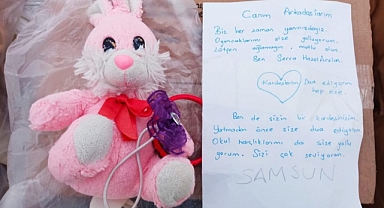 Canım Arkadaşlarım
Biz her zaman yanınızdayız.
Oyuncaklarımı size yolluyorum.
Lütfen ağlamayın, mutlu olun.
Ben Serra Hazal Arslan
Kardeşlerim Dua ediyorum
hep size.
Ben de sizin bir kardeşinizim.
Yatmadan önce size dua ediyorum
Okul harçlıklarımı da size yollu
yorum. Sizi çok seviyorum.
SAMSUN